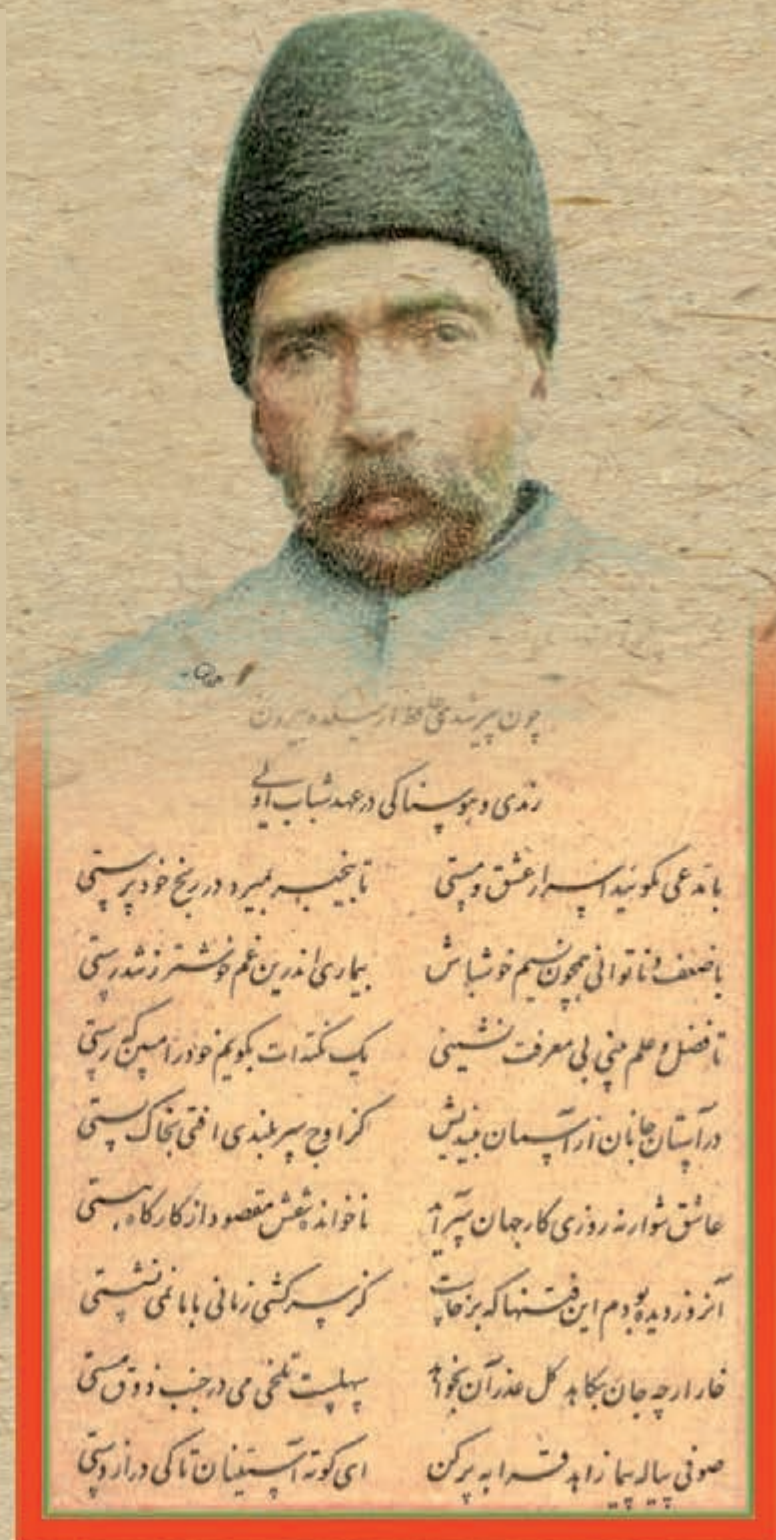 چون پیر شدی حافظ از میکده بیرون
رندی و هوسناکی در عهد شباب اولی
با مدعی مگوئید اسرار عشق و مستی تا بیخبر بمیرد در رنج خودپرستی
با ضعف و ناتوانی همچون نسیم خوشباش بیماری اندرین غم خوشتر ز تندرستی
تا فضل و علم بینی بی معرفت نشینی یک نکته ات بگویم خود را مبین که رستی
در آستان جانان از آسمان میندیش کز اوج سربلندی افتی بخاک پستی
عاشق شو ار نه روزی کار جهان سرآید ناخوانده نقش مقصود از کارگاه هستی
آنروز دیده بودم این فتنها که برخاست کز سرکشی زمانی با ما نمی نشستی
خار ارچه جان بکاهد گل عذر آن بخواهد سهلست تلخی می در جنب ذوق مستی
صوفی پیاله پیما زاهد قرابه پرکن ای کوته آستینان تا کی درازدستی